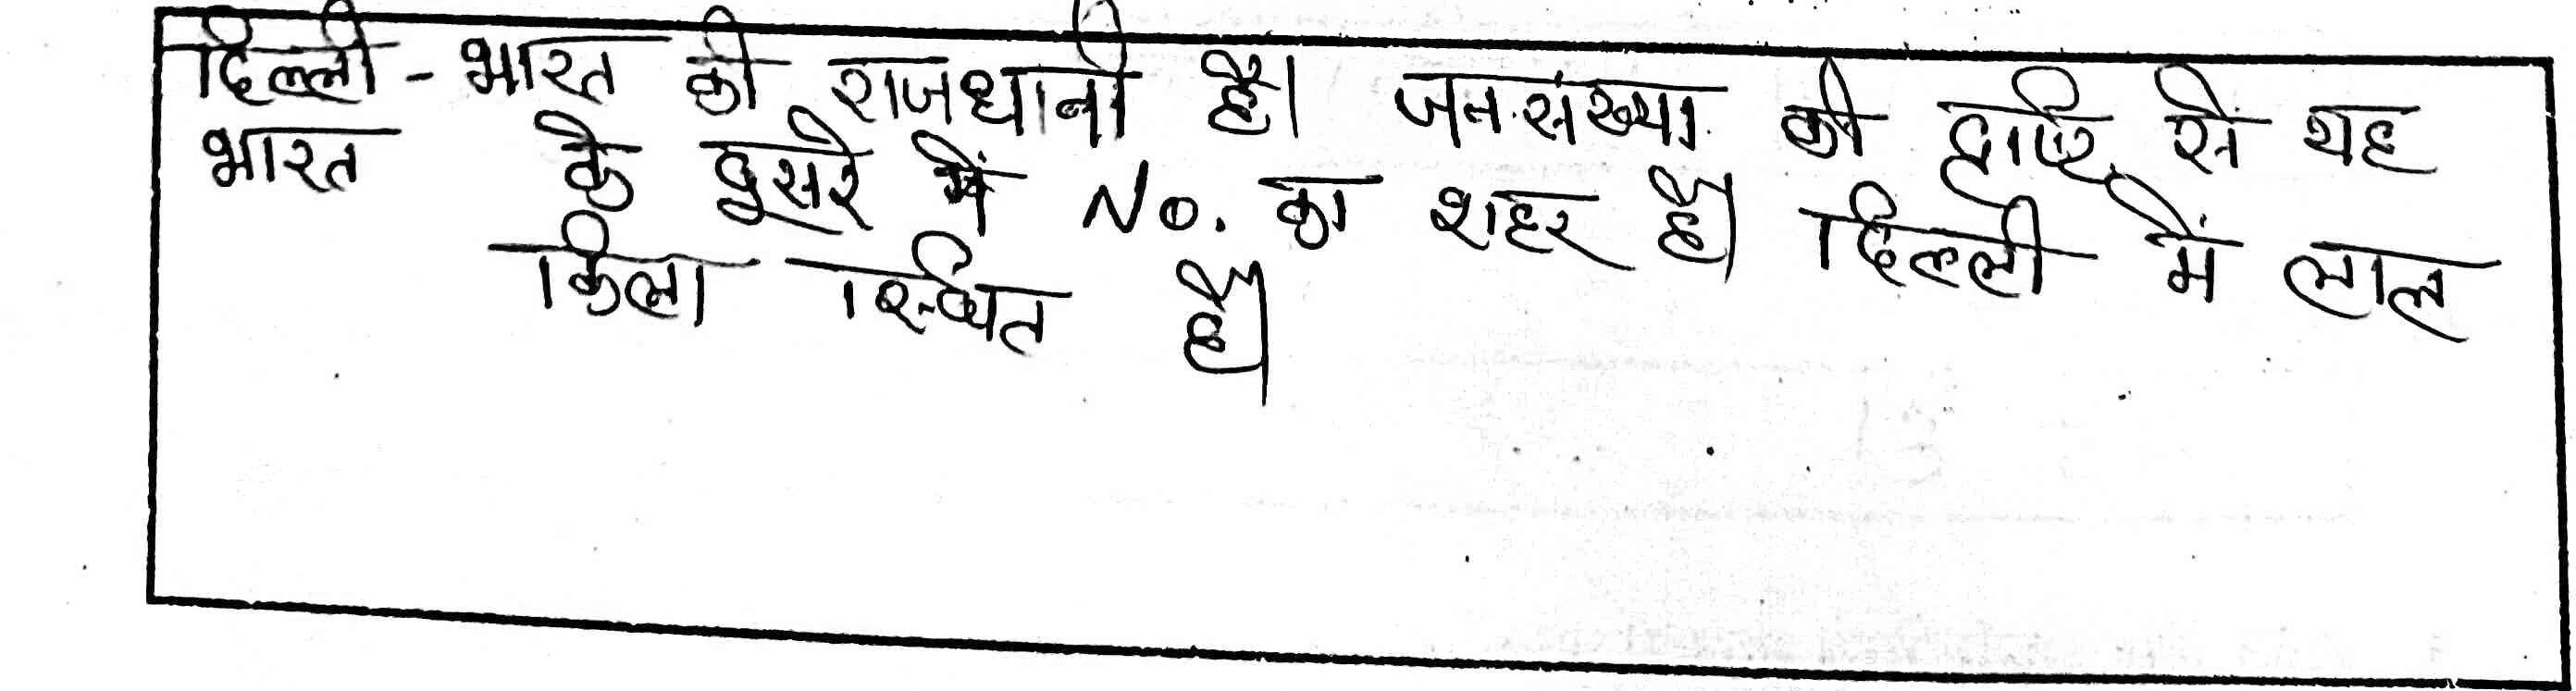 दिल्ली - भारत की राजधानी है। जनसंख्या की दृष्टि से यह
भारत के दूसरे में No. का शहर है। दिल्ली में लाल
किला स्थित है।